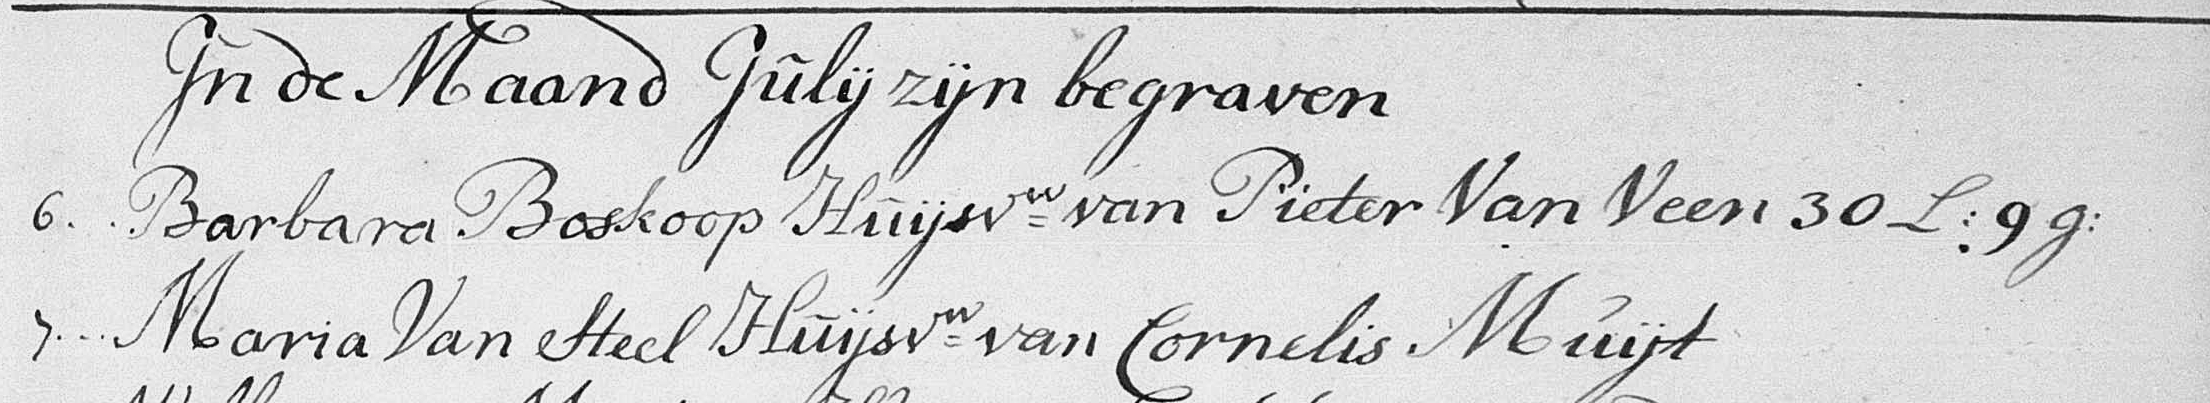 In de Maand Julij zijn begraven
6. . Barbara Boskoop Huijsvw= van Pieter Van Veen 30 L: 9 g:
7 . . . Maria Van Steel Huijsvw= van Cornelis Muijt